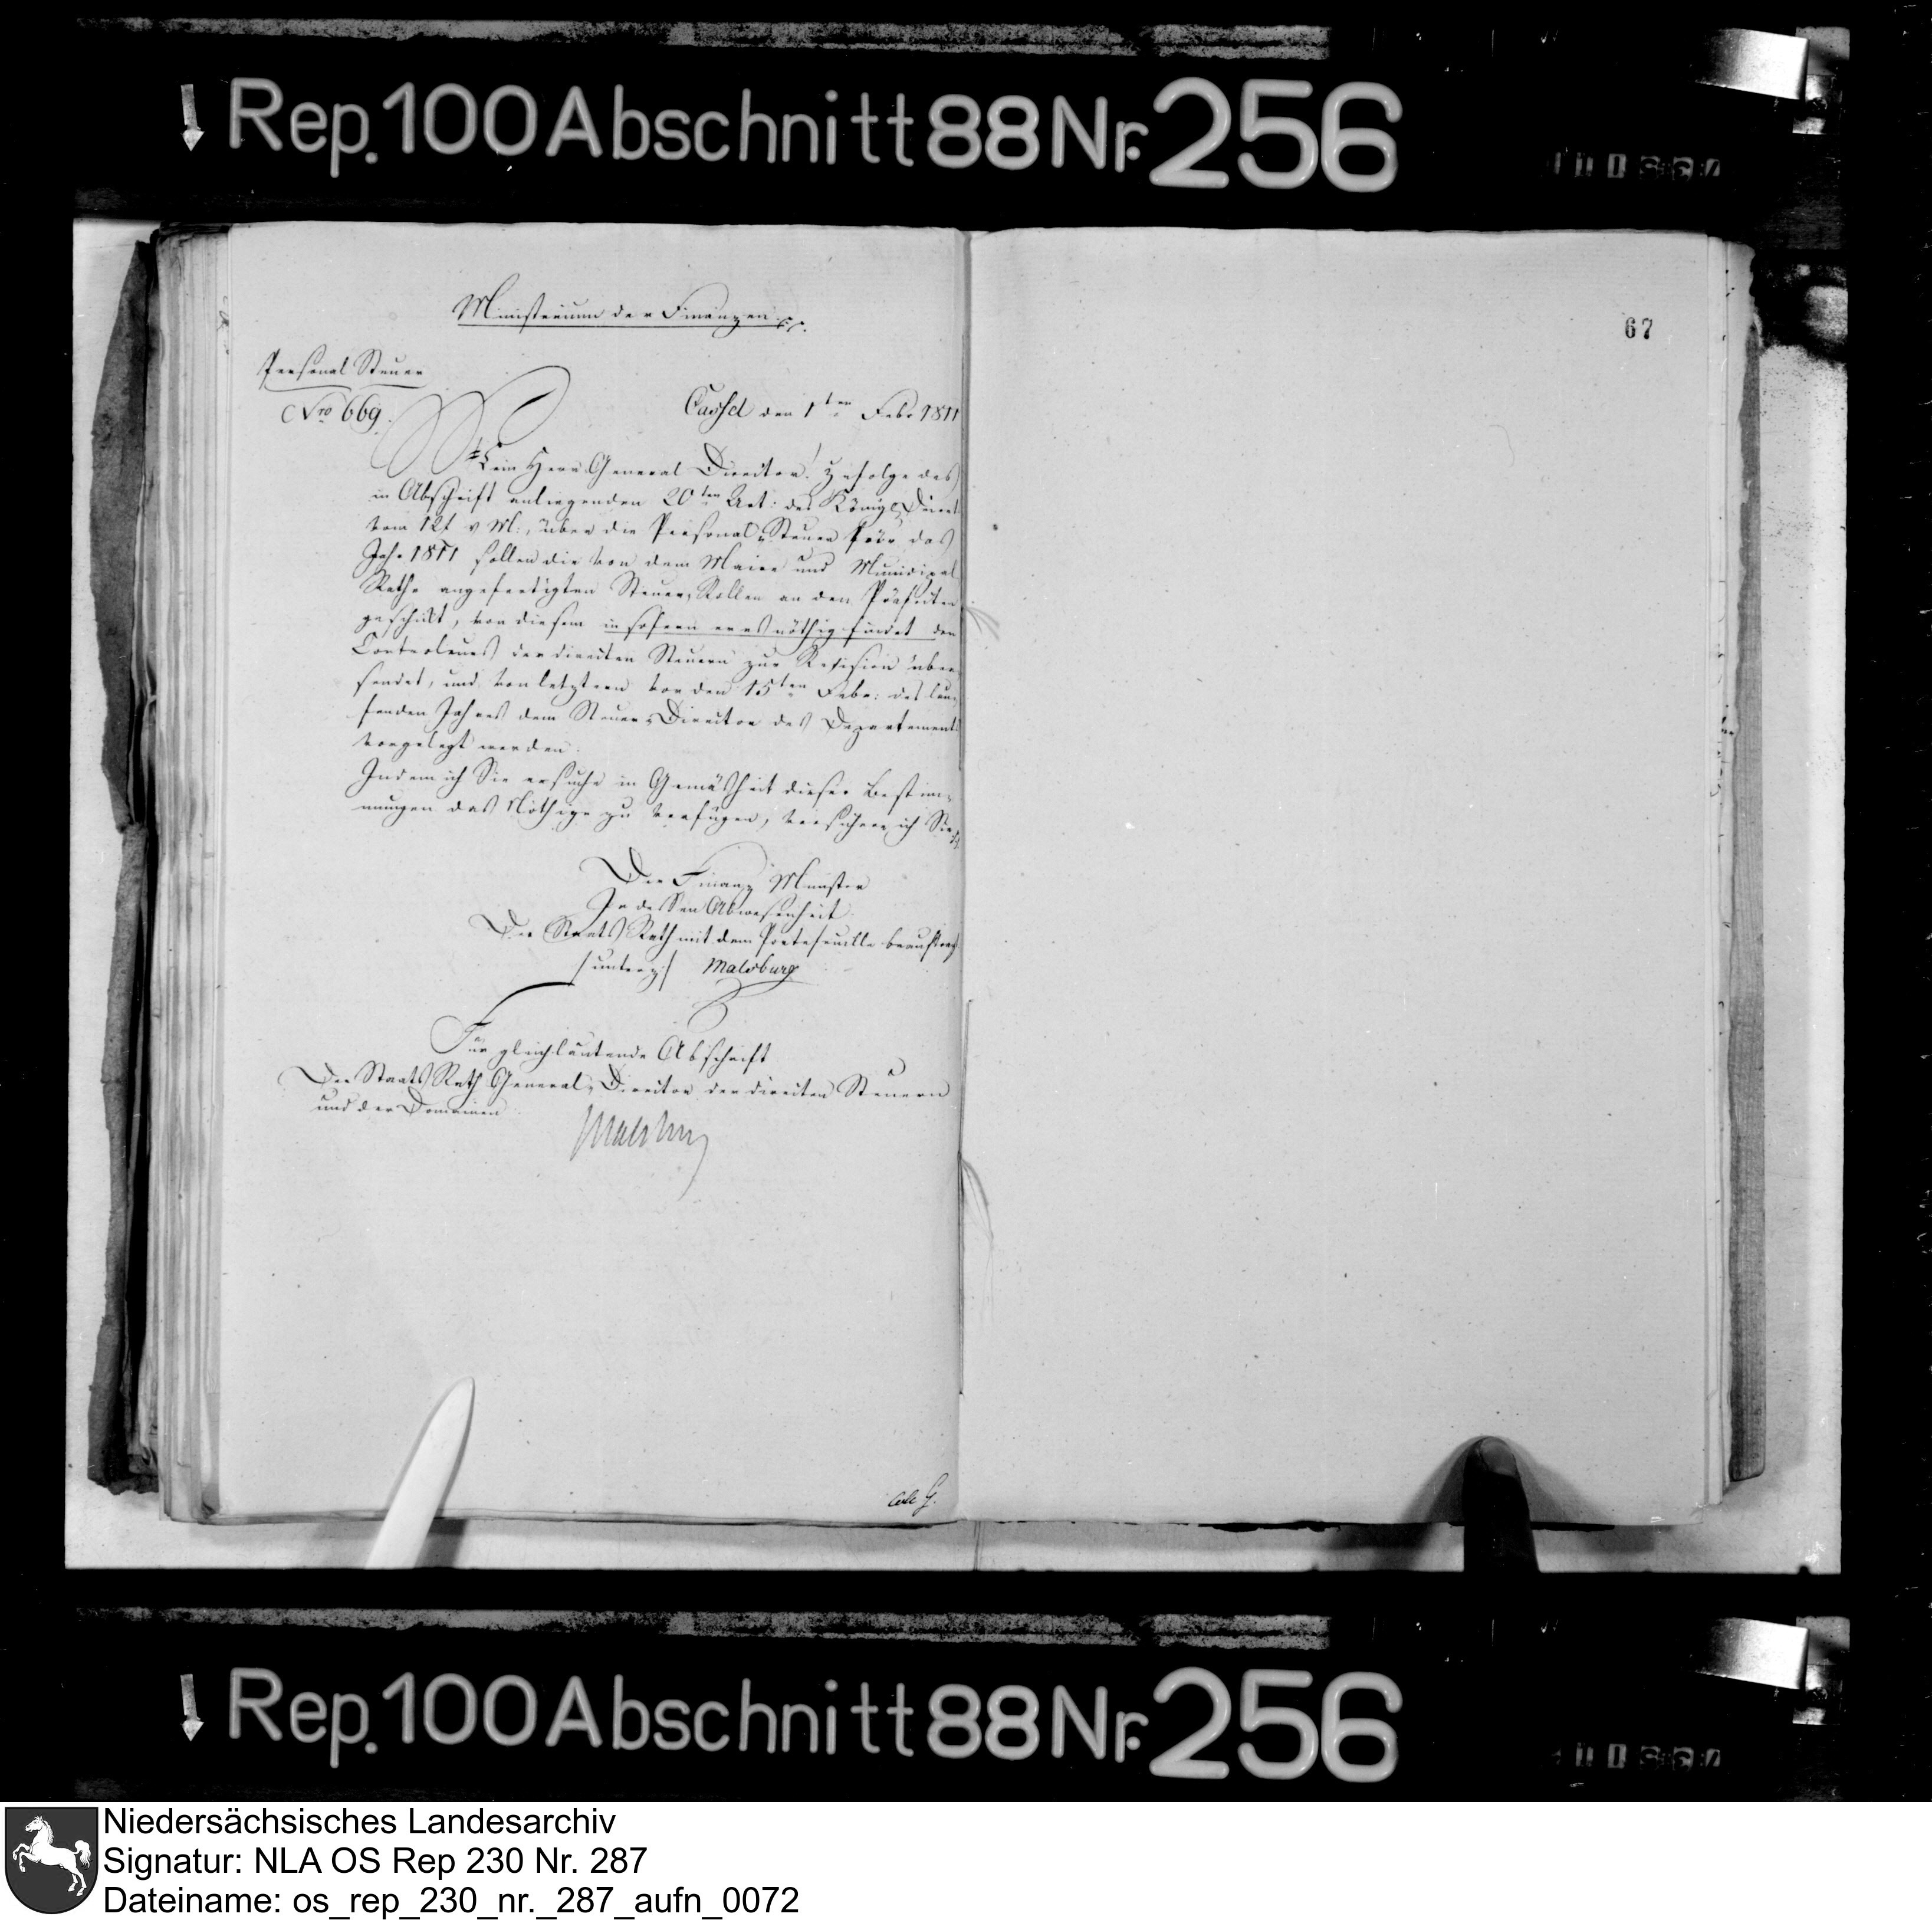 Rep. 100 Abschnitt 88 Nr. 256
Ministerium der Finanzen
67
Personal Steuer
Nro 669.
Cassel den 1ten Febr 1811
Mein Herr General Director! Zufolge des
in Abschrift anliegenden 20ten Art: des Königl Decret
vom 12t v M:, über die Personal-Steuer fürs das
Jahr 1811 sollen die von dem Maire und Municipal
Rathe angefertigten Steuer-Rollen an den Präfecten
geschickt, von diesem in sofern er es nöthig findet den
Controleurs der directen Steuern zur Revision über-
sendet, und von letztern vor den 15ten Febr: des lau-
fenden Jahres dem Steuer-Director des Departements
vorgelegt werden.
Indem ich Sie ersuche in Gemäsheit dieser Bestim-
mungen das Nöthige zu verfügen, versichere ich Sie
Der Finanz Minister
In dessen Abwesenheit
Der Staats Rath mit dem Portefeuille beauftragt
/unterz:/ Malsburg
Für gleichlautende Abschrift
Der Staats Rath General-Director der directen Steuern
und der Domainen
Malsburg
Rep. 100 Abschnitt 88 Nr. 256
Niedersächsisches Landesarchiv
Signatur: NLA OS Rep 230 Nr. 287
Dateiname: os_rep_230_nr._287_aufn_0072